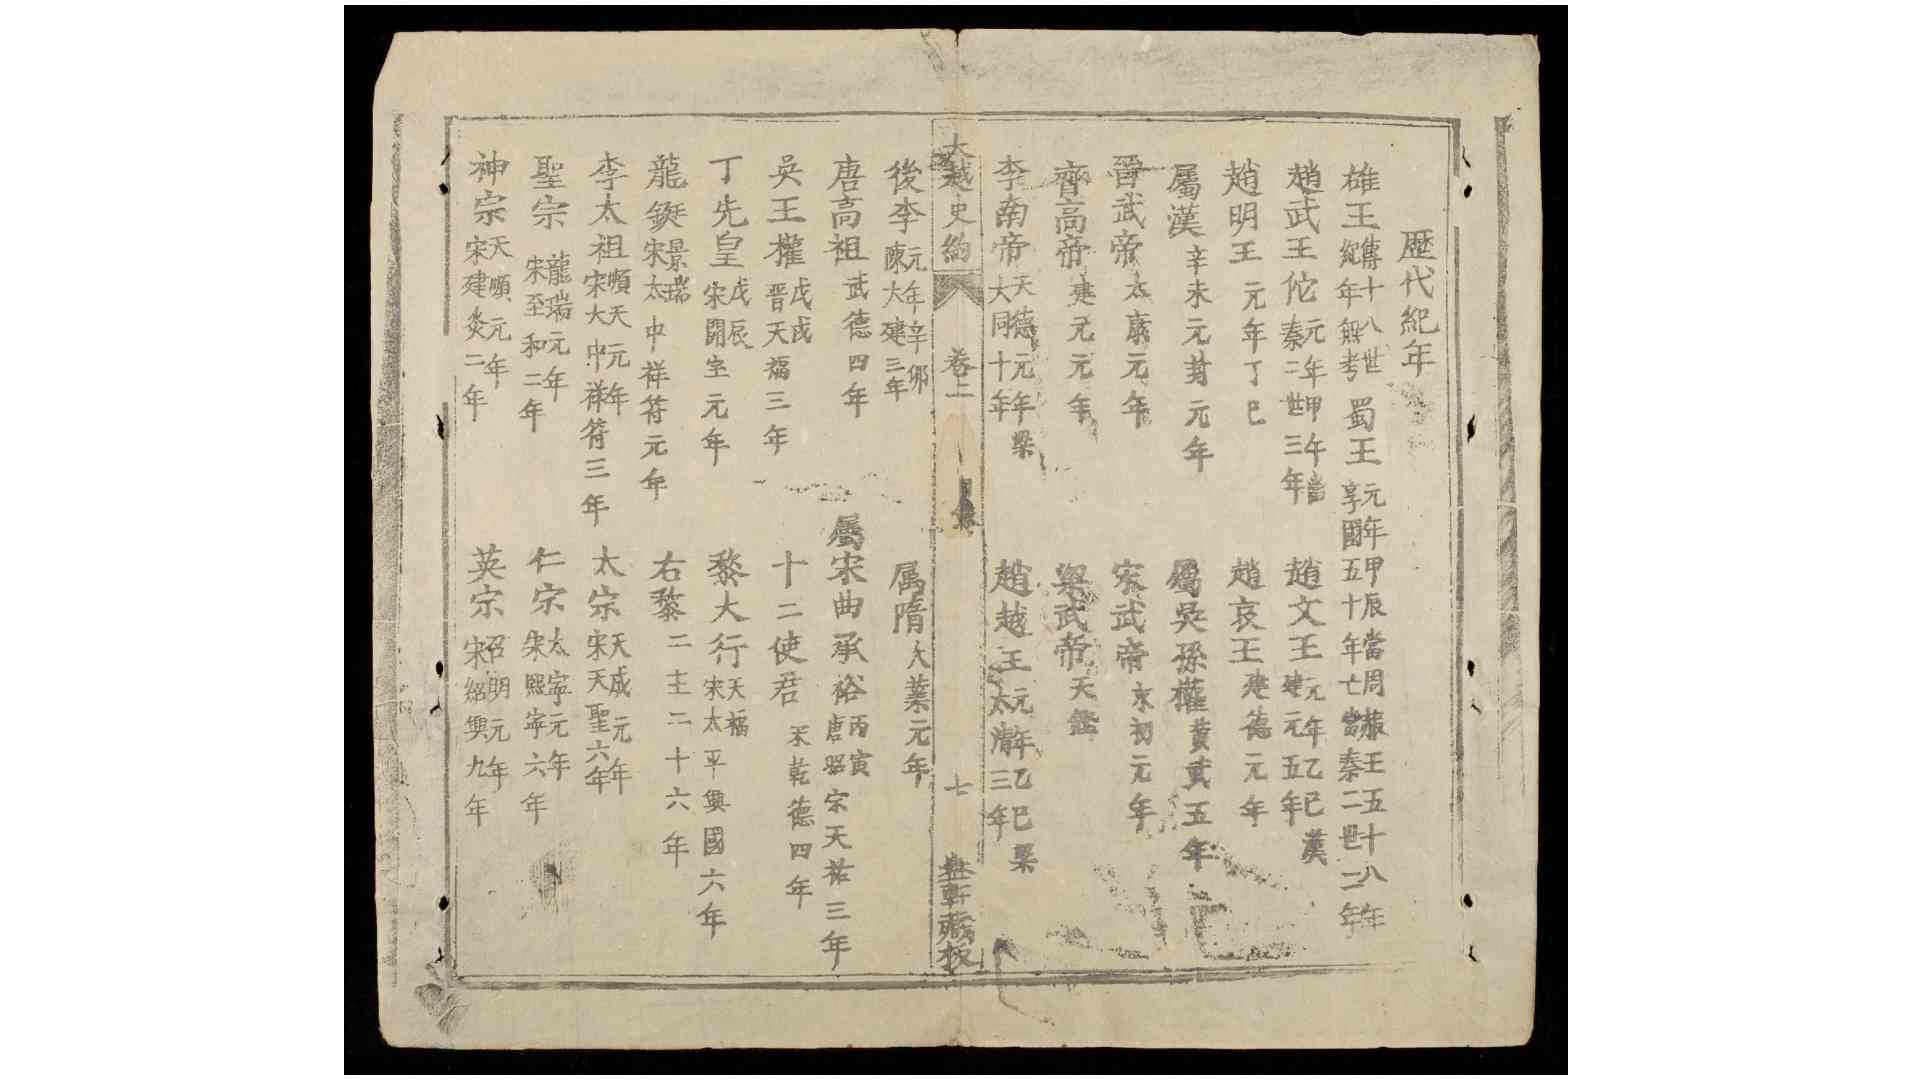 歷代紀年
雄王傳十八世紀年無考 蜀王元年甲辰當周赧王五十八年享國五十年亡當秦二世二年
趙武王佗元年甲午當秦二世三年 趙文王元年乙巳漢建元五年
趙明王元年丁巳 趙哀王建德元年
屬漢辛未元封元年 屬吳孫權黃武五年
晉武帝太康元年 宋武帝永初元年
齊高帝建元元年 梁武帝天鑑
李南帝天德元年梁大同十年 趙越王元年乙巳梁太清三年
大越史約 卷二 目錄 七 軒藏板
後李元年辛卯陳大建三年 属隋大業元年
唐高祖武德四年 屬宋曲承裕丙寅唐昭宗天祐三年
吳王權戊戌晋天福三年 十二使君宋乾德四年
丁先皇戊辰宋開宝元年 黎大行天福宋太平興國六年
龍鋌景瑞宋太中祥符元年 右黎二主二十六年
李太祖順天元年宋大中祥符三年 太宗天成元年宋天聖六年
聖宗龍瑞元年宋至和二年 仁宗太寧元年宋熙寧六年
神宗天順元年宋建炎二年 英宗召明元年宋紹興九年